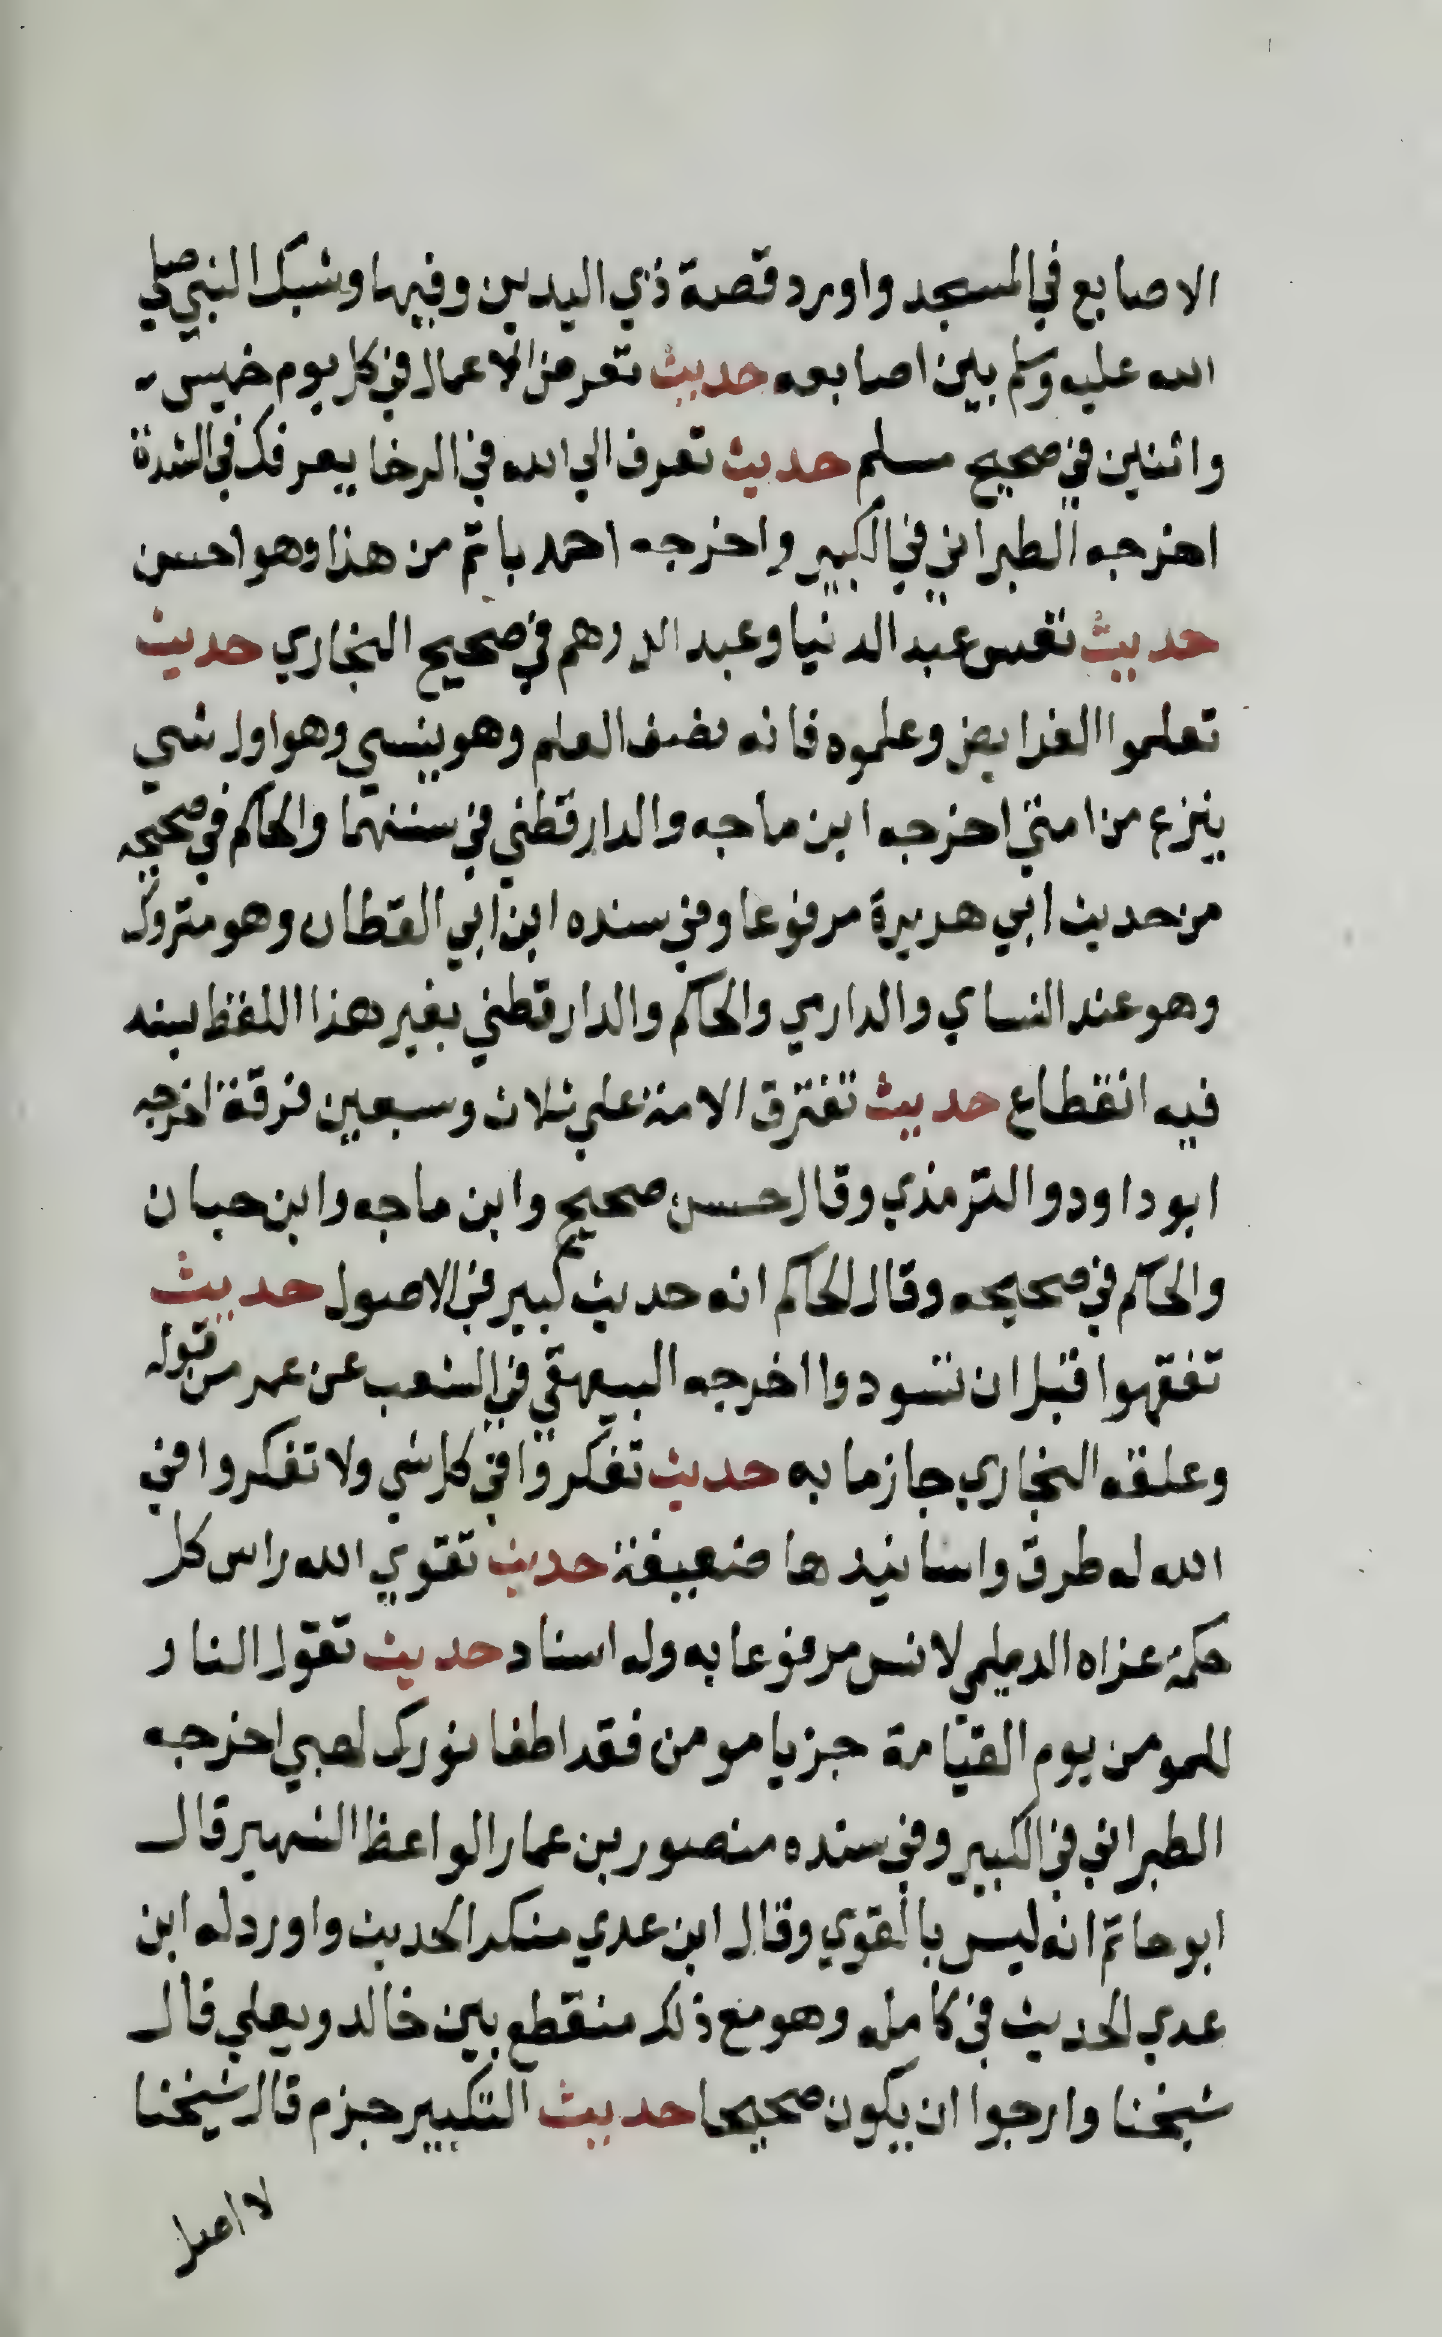 الاصابع في المسجد واورد قصة ذي اليدين وفيها وشبك النبي صلي
الله عليه وسلم بين اصابعه حديث تعرض الاعمال في كل يوم خميس
واثنين في صحيح مسلم حديث تعرف الي الله في الرخا يعرفك في الشدة
اخرجه الطبراني في الكبير واخرجه احمد باتم من هذا وهو احسن
حديث تعس عبد الدنيا وعبد الدرهم في صحيح البخاري حديث
تعلموا الفرايض وعلموه فانه نصف العلم وهو ينسي وهو اول شي
ينزع من امتي اخرجه ابن ماجه والدارقطني في سننهما والحاكم في صحيحه
من حديث ابي هريرة مرفوعا وفي سنده ابن ابي القطان وهو متروك
وهو عند النساي والدارمي والحاكم والدارقطني بغير هذا اللفظ بسنه
فيه انقطاع حديث تفترق الامة علي ثلاث وسبعين فرقة اخرجه
ابو داود والترمذي وقال حسن صحيح وابن ماجه وابن حبان
والحاكم في صحيحه وقال الحاكم انه حديث كبير في الاصول حديث
تفقهوا قبل ان تسودوا اخرجه البيهقي في الشعب عن عمر من قوله
وعلقه البخاري جازما به حديث تفكروا في كل شي ولا تفكروا في
الله له طرق واسانيدها ضعيفة حديث تقوي الله راس كل
حكمة عزاه الديلمي لانس مرفوعا به وله اسناد حديث تقول النار
للمومن يوم القيامة جز يا مومن فقد اطفا نورك لهبي اخرجه
الطبراني في الكبير وفي سنده منصور بن عمار الواعظ الشهير قال
ابو حاتم انه ليس بالقوي وقال ابن عدي منكر الحديث واورد له ابن
عدي الحديث في كامله وهو مع ذلك منقطع بين خالد ويعلي قال
شيخنا وارجوا ان يكون صحيحا حديث التكبير جزم قال شيخنا
لا اصل